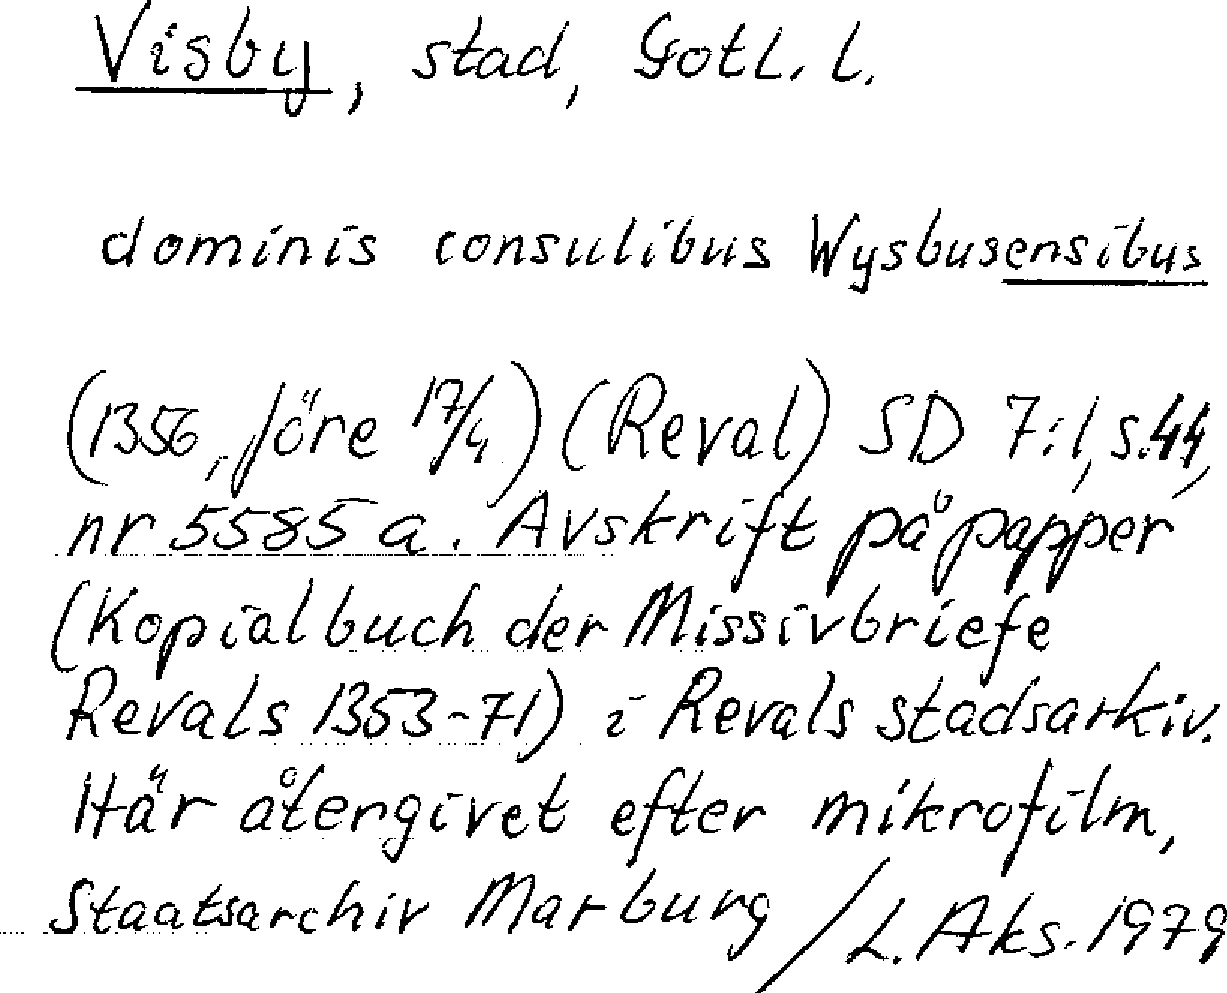 Visby, stad, Gotl. l.
dominis consulibus Wysbusensibus
(1356, före 17/4) (Reval) SD 7:1, s.44,
nr 5585 a. Avskrift på papper
(Kopialbuch der Missivbriefe
Revals 1353-71) i Revals stadsarkiv.
Här återgivet efter mikrofilm,
Staatsarchiv Marburg / L. Aks. 1979